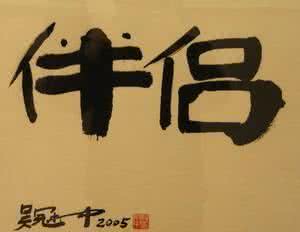 伴侣
吴冠中 2005